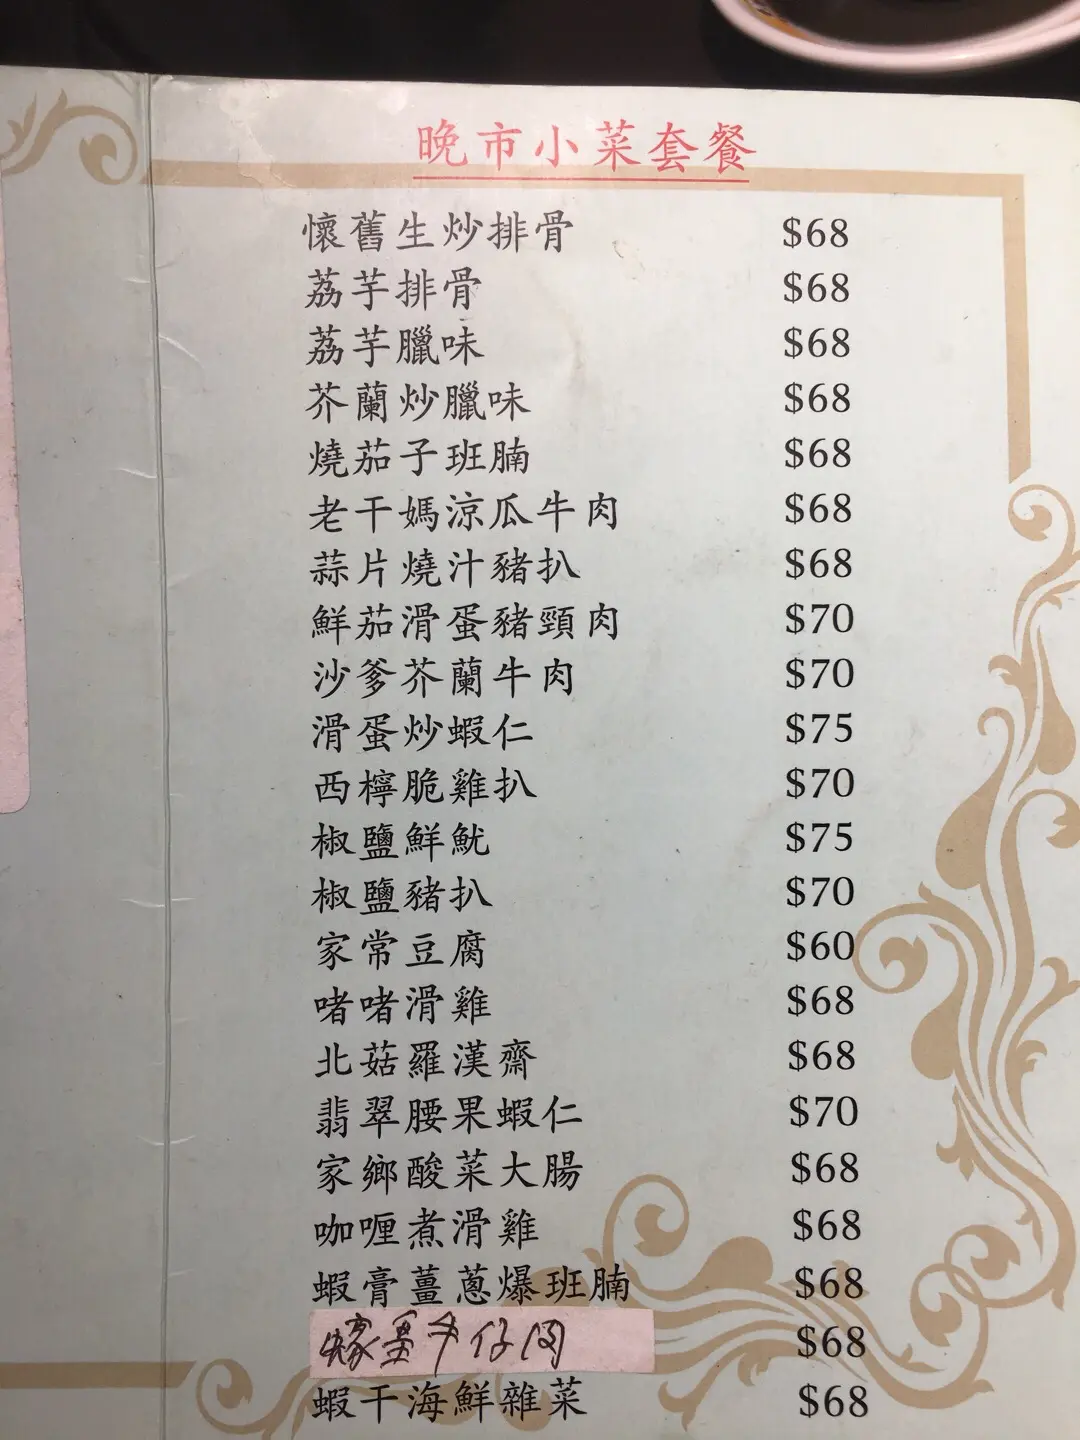 晚市小菜套餐
懷舊生炒排骨 $68
荔芋排骨 $68
荔芋臘味 $68
芥蘭炒臘味 $68
燒茄子班腩 $68
老干媽涼瓜牛肉 $68
蒜片燒汁豬扒 $68
鮮茄滑蛋豬頸肉 $70
沙爹芥蘭牛肉 $70
滑蛋炒蝦仁 $75
西檸脆雞扒 $70
椒鹽鮮魷 $75
椒鹽豬扒 $70
家常豆腐 $60
啫啫滑雞 $68
北菇羅漢齋 $68
翡翠腰果蝦仁 $70
家鄉酸菜大腸 $68
咖喱煮滑雞 $68
蝦膏薑蔥爆班腩 $68
仔肉 $68
蝦干海鮮雜菜 $68